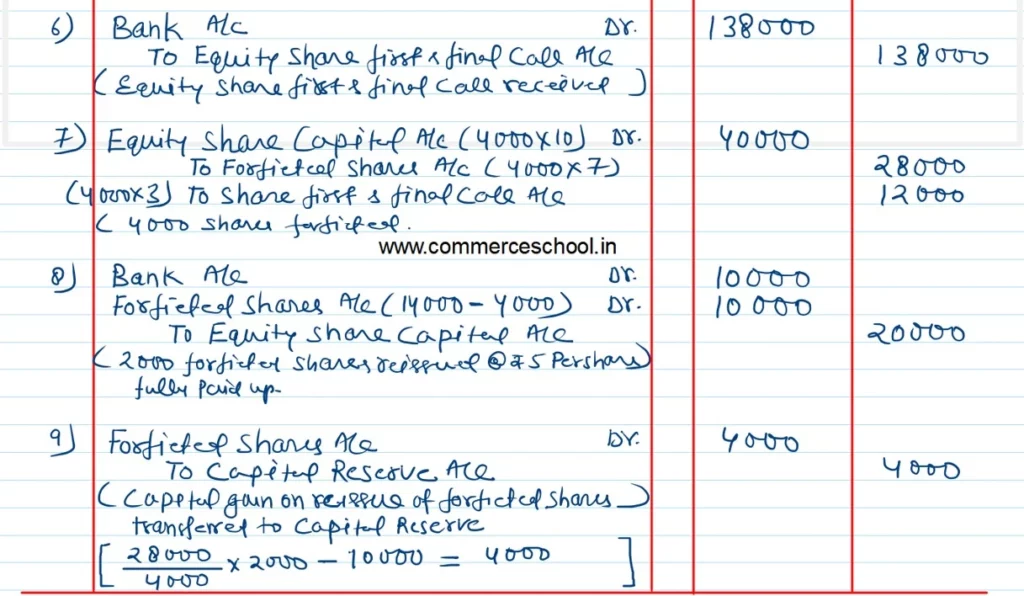 6) Bank A/c Dr. 138000
To Equity Share first & final Call A/c 138000
( Equity Share first & final Call received )
7) Equity Share Capital A/c (4000x10) Dr. 40000
To Forficted Shares A/c (4000x7) 28000
(4000x3) To Share first & final Call A/c 12000
( 4000 Shares forficted.
www.commerceschool.in
8) Bank A/c Dr. 10000
Forficted Shares A/c (14000-4000) Dr. 10000
To Equity Share Capital A/c 20000
( 2000 forficted Shares reissued @ ₹5 Per share )
fully Paid up
9) Forficted Shares A/c Dr. 4000
To Capital Reserve A/c 4000
( Capital gain on reissue of forficted Shares )
transferred to Capital Reserve
[ 28000/4000 x 2000 - 10000 = 4000 ]